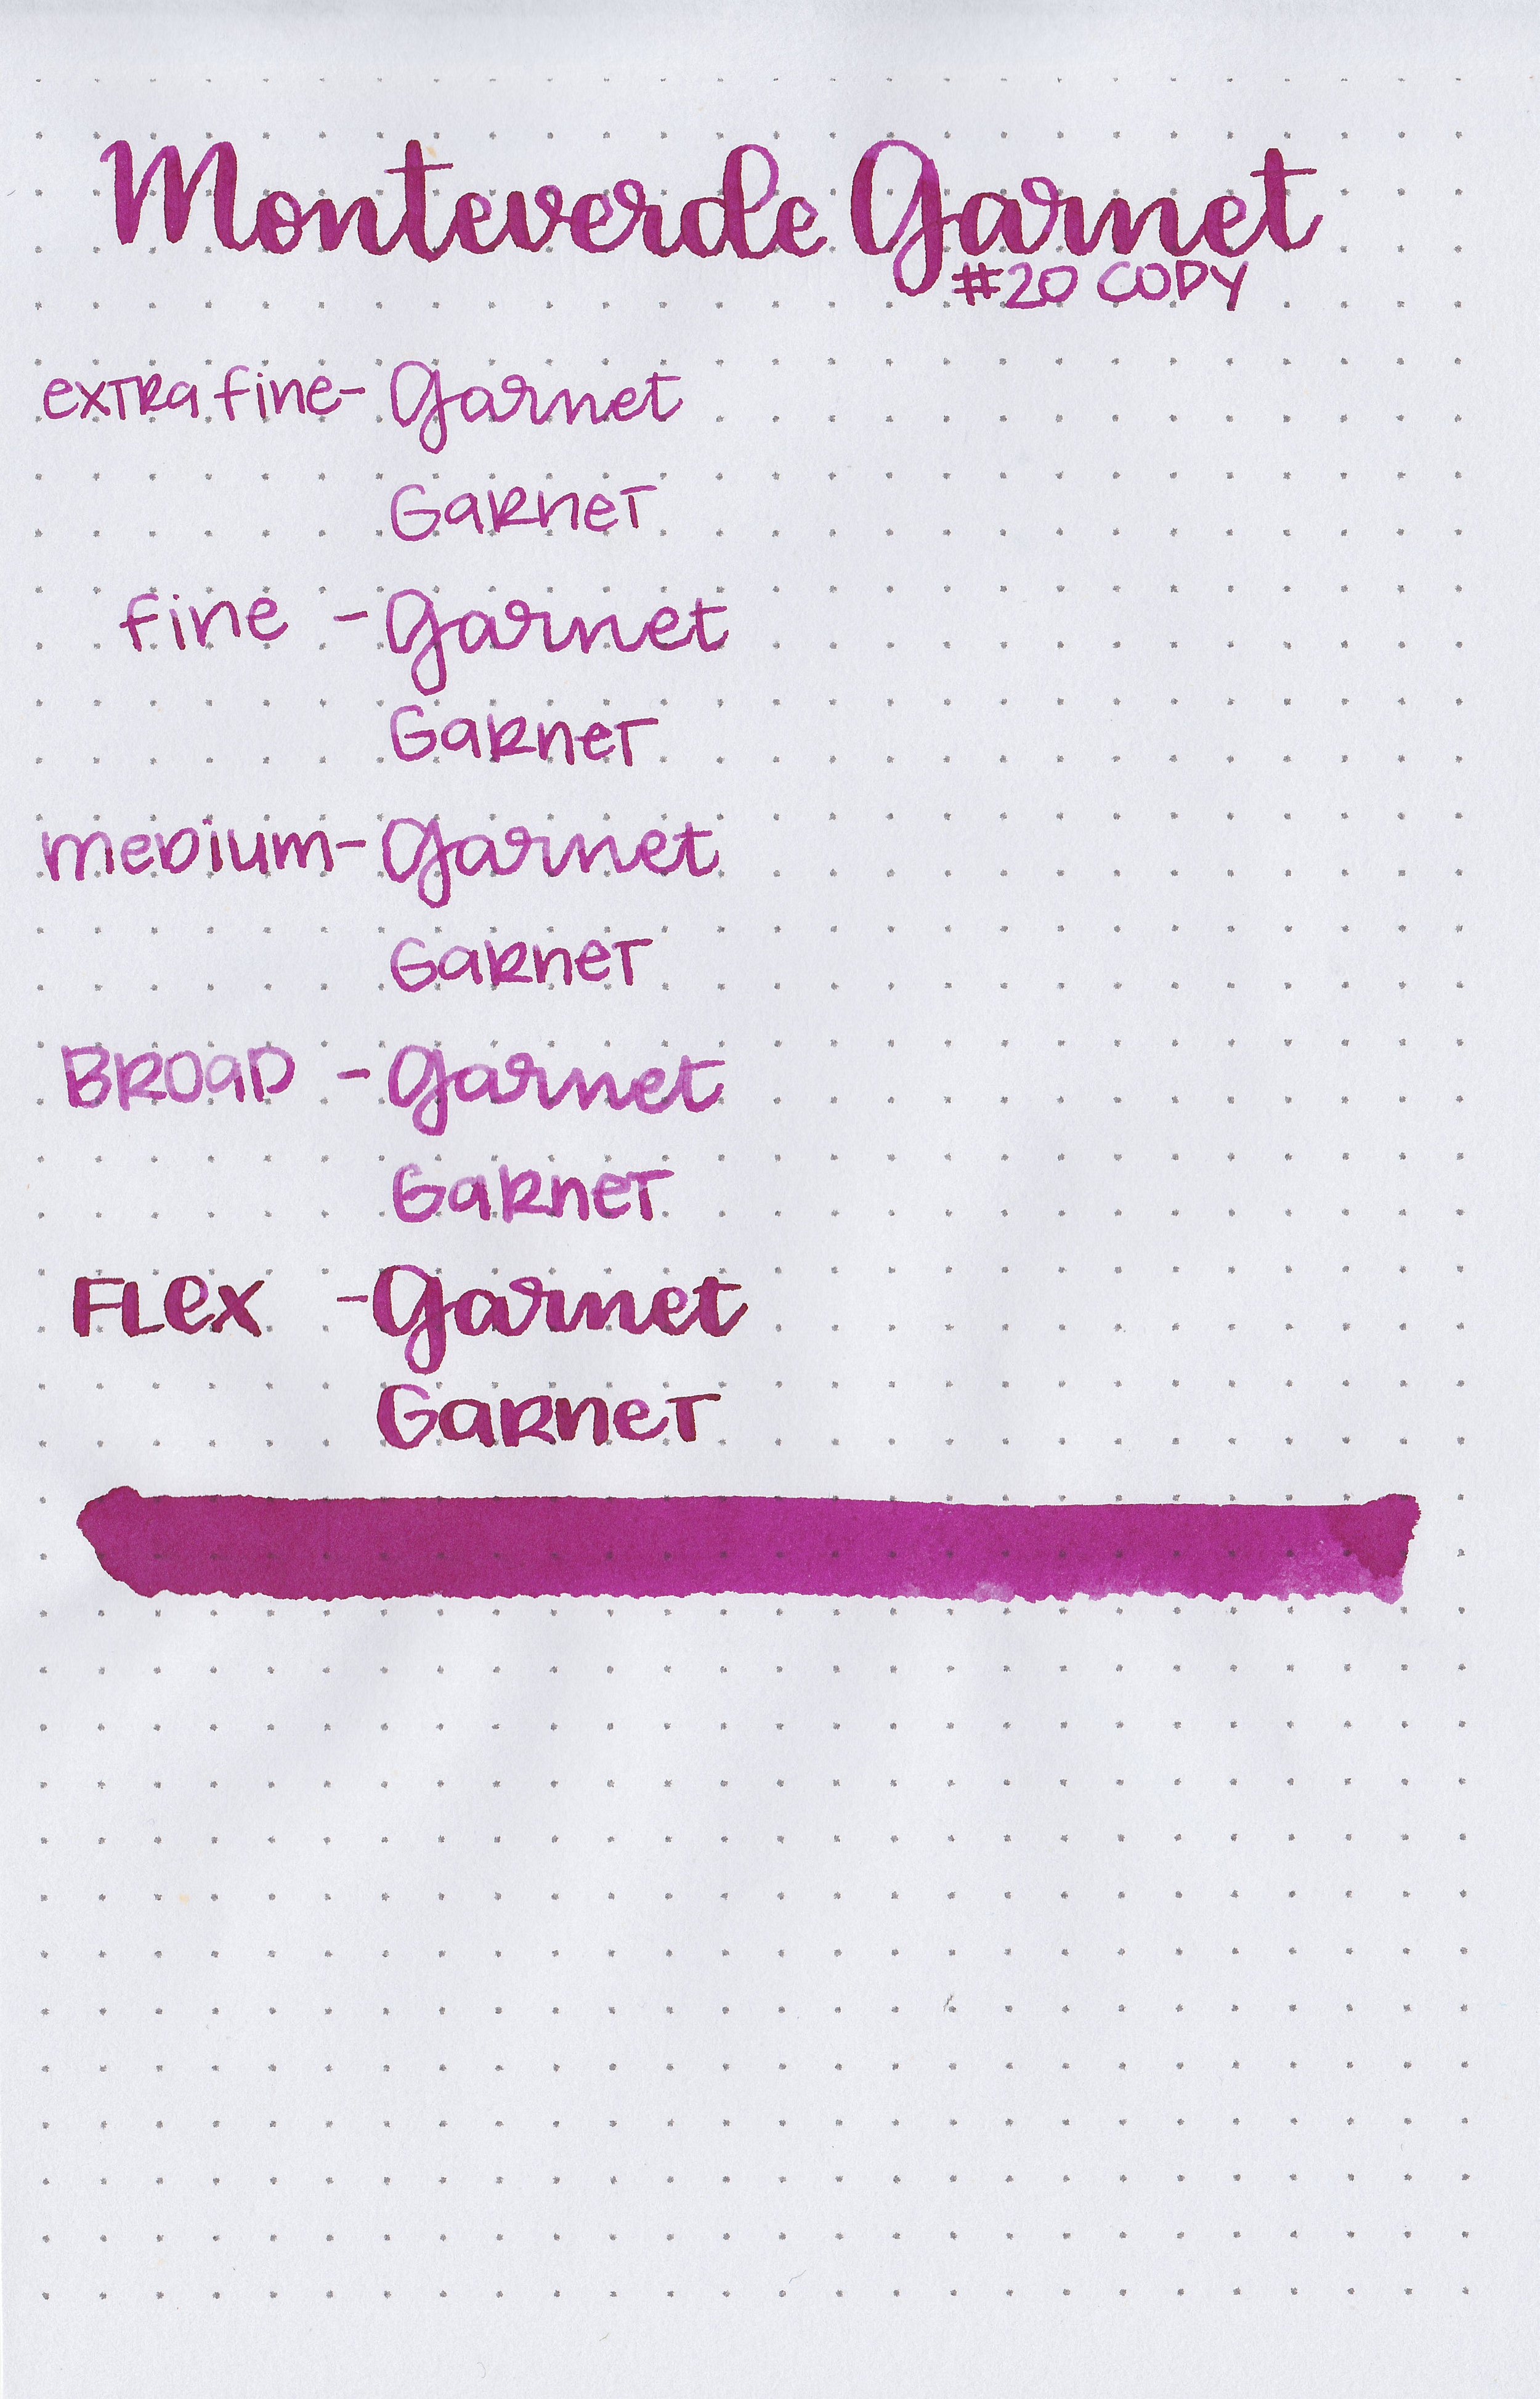 Monteverde Garnet
#20 COPY
exTRa fine- Garnet
GaRneT
fine - Garnet
GaRneT
meDium- Garnet
GaRneT
BROaD - Garnet
GaRneT
FLex - Garnet
GaRneT